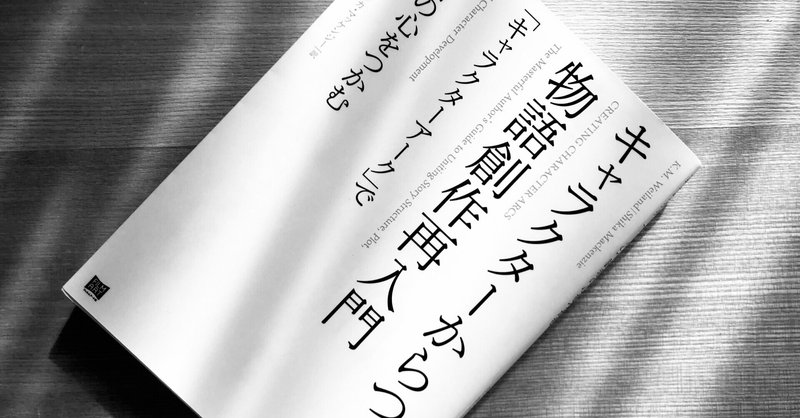 K.M. Weiland/Shika Mackenzie
キャラクターからつ
CREATING CHARACTER ARCS
物語創作再入門
The Masterful Author's Guide to Uniting Story Structure, Plot,
Character Development
「キャラクターアーク」で
の心をつかむ
カ・マッケンジー[訳]
FILM
ART